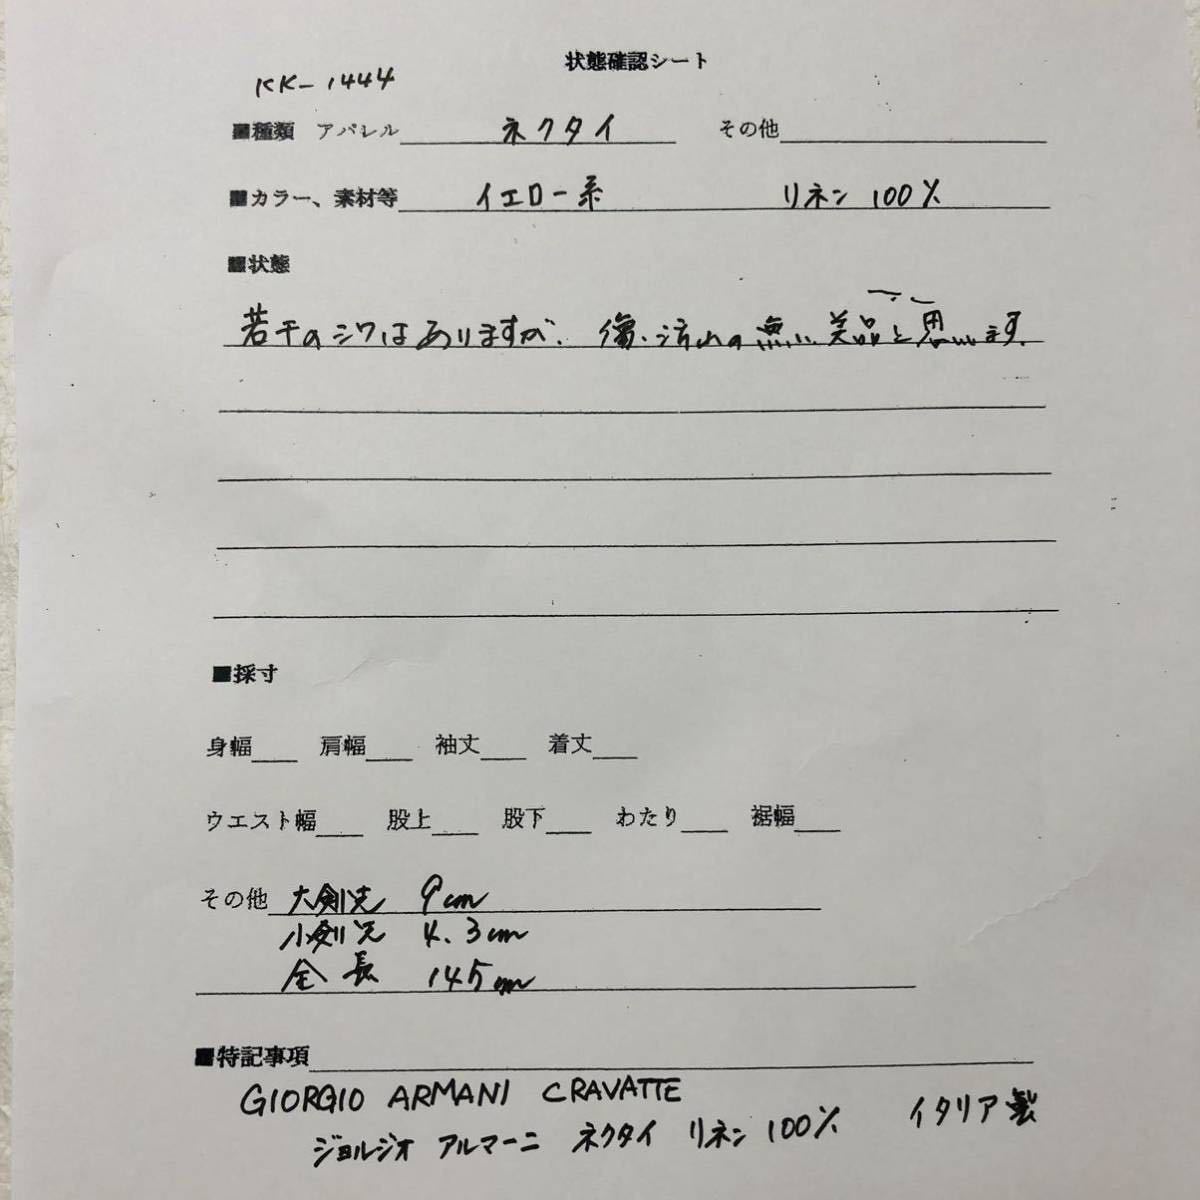 状態確認シート
KK-1444
■種類 アパレル ネクタイ その他
■カラー、素材等 イエロー系 リネン 100%
■状態
若干のシワはありますが、傷、汚れの無い美品と思います。
■採寸
身幅 肩幅 袖丈 着丈
ウエスト幅 股上 股下 わたり 裾幅
その他 大剣先 9cm
小剣先 4.3cm
全長 145cm
■特記事項
GIORGIO ARMANI CRAVATTE
ジョルジオ アルマーニ ネクタイ リネン 100% イタリア製